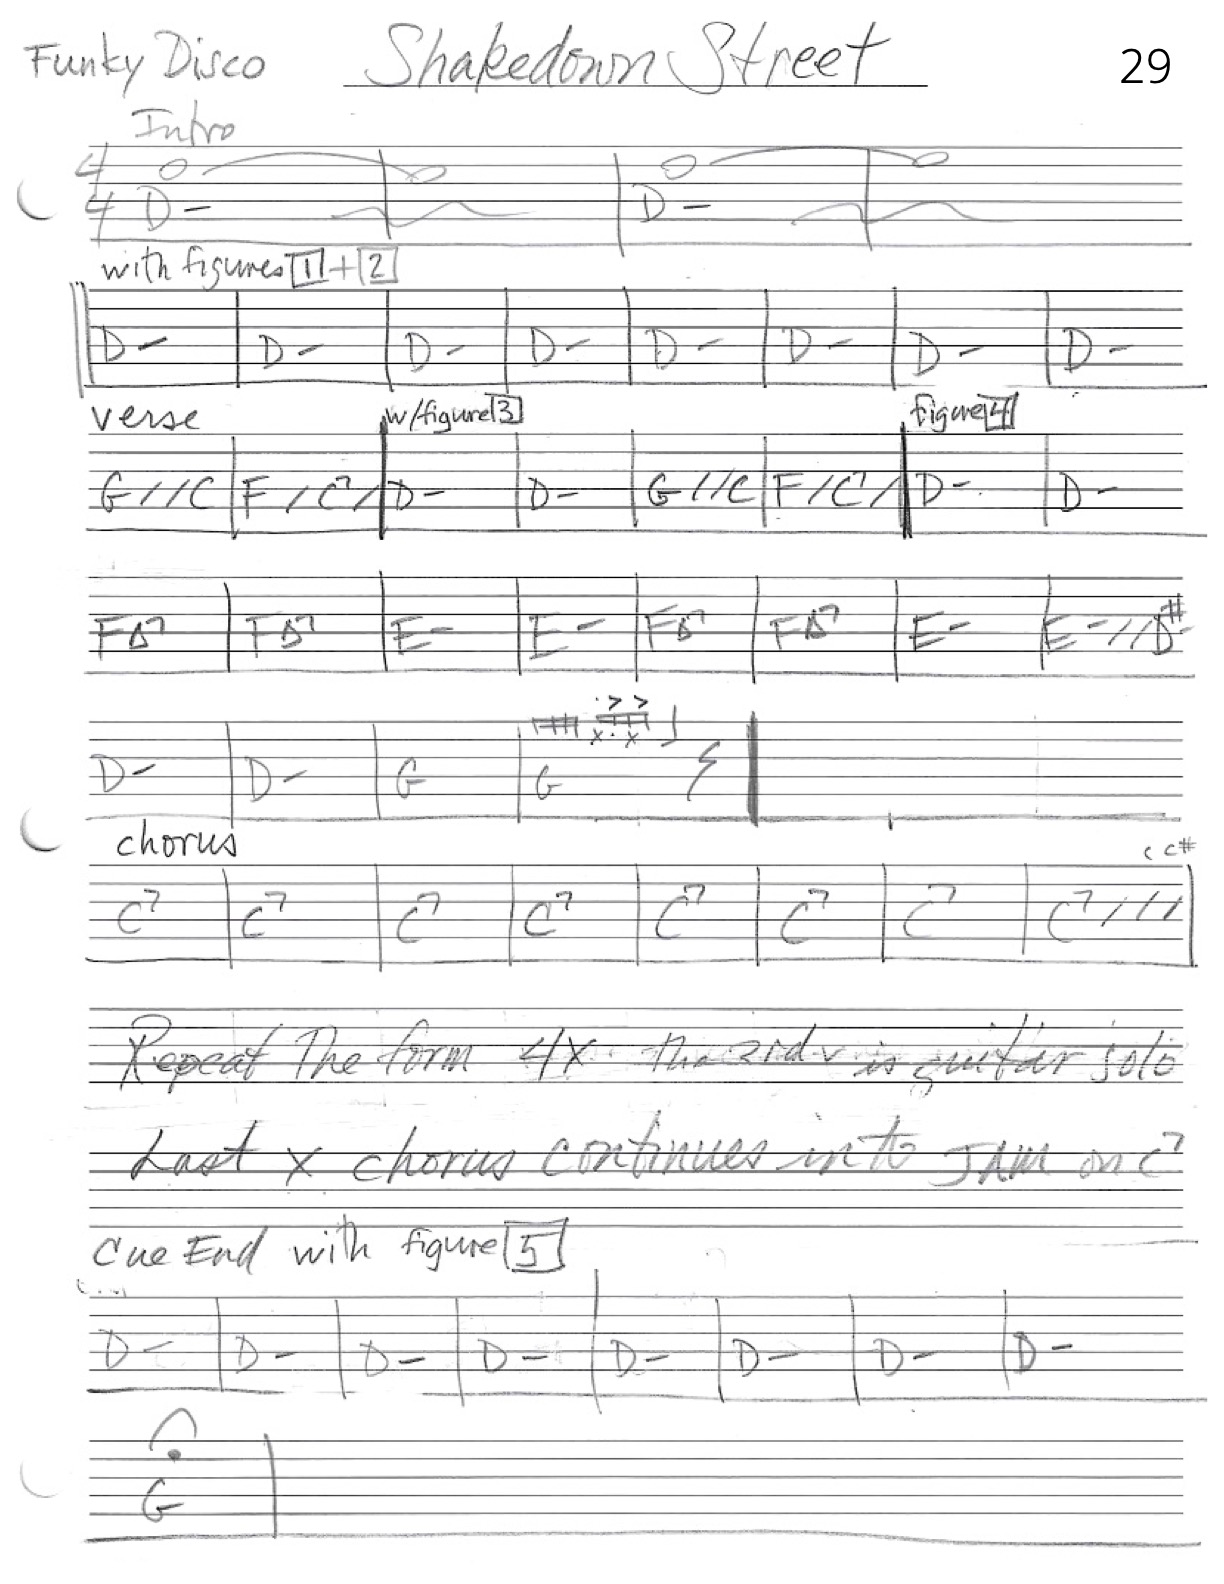 Funky Disco Shakedown Street 29
Intro
4
4 D- D-
with figures 1 + 2
D- D- D- D- D- D- D- D-
verse w/figure 3 figure 4
G / / C F / C7 / D- D- G / / C F / C7 / D- D-
FΔ7 FΔ7 E- E- FΔ7 FΔ7 E- E- / / D#-
D- D- G G
chorus
C C#
C7 C7 C7 C7 C7 C7 C7 C7 / / /
Repeat The form 4x is guitar solo
Last x chorus continues into JAM on C7
Cue End with figure 5
D- D- D- D- D- D- D- D-
G